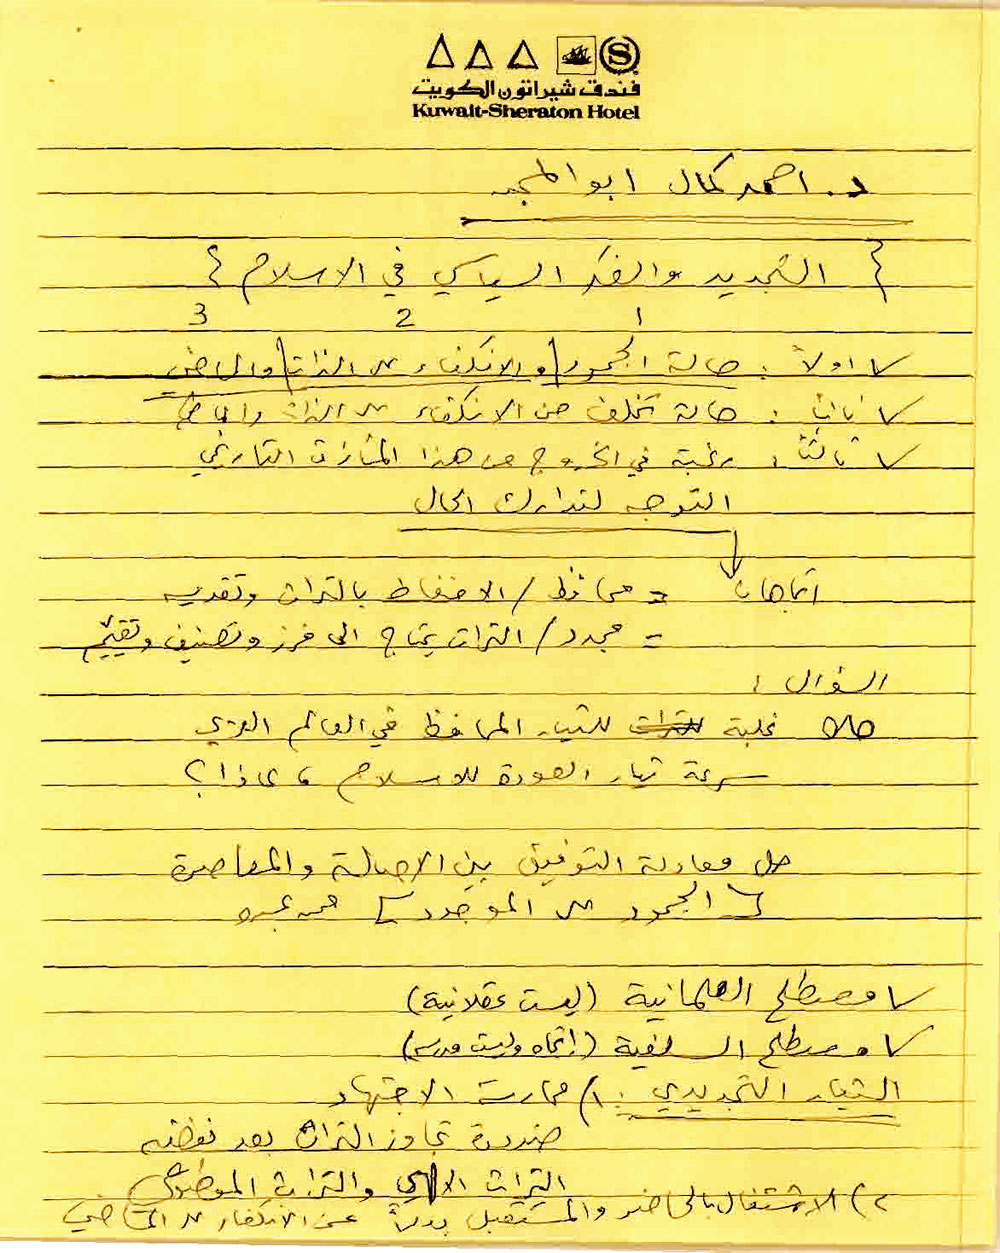 فندق شيراتون الكويت
Kuwait-Sheraton Hotel
د. احمد كمال ابو المجد
{ التجديد والفكر السياسي في الاسلام }
1 2 3
✓ اولاً : حالة الجمود | والانكفاء على التراث | والماضي
✓ ثانياً : حالة تخلف من الانكفاء على التراث والماضي
✓ ثالثاً : رغبة في الخروج من هذا التاريخي
التوجه لتدارك الحال
اتجاهات = محافظ / الاحتفاظ بالتراث وتقديسه
= مجدد / التراث يحتاج الى فرز وتصنيف وتقييم
السؤال :
غلبة للتيار المحافظ في العالم العربي
سرعة تيار العودة للاسلام ، لماذا ؟
حل معادلة التوفيق بين الاصالة والمعاصرة
[ الجمود على الموجود ] محمد عبده
✓ مصطلح العلمانية (ليست عقلانية)
✓ مصطلح السلفية (اتجاه وليست مدرسة)
التيار التجديدي : ١) ممارسة الاجتهاد
ضرورة تجاوز التراث بعد
التراث الالهي والتراث
٢) الاشتغال بالحاضر والمستقبل بدلاً عن الانكفاء على الماضي